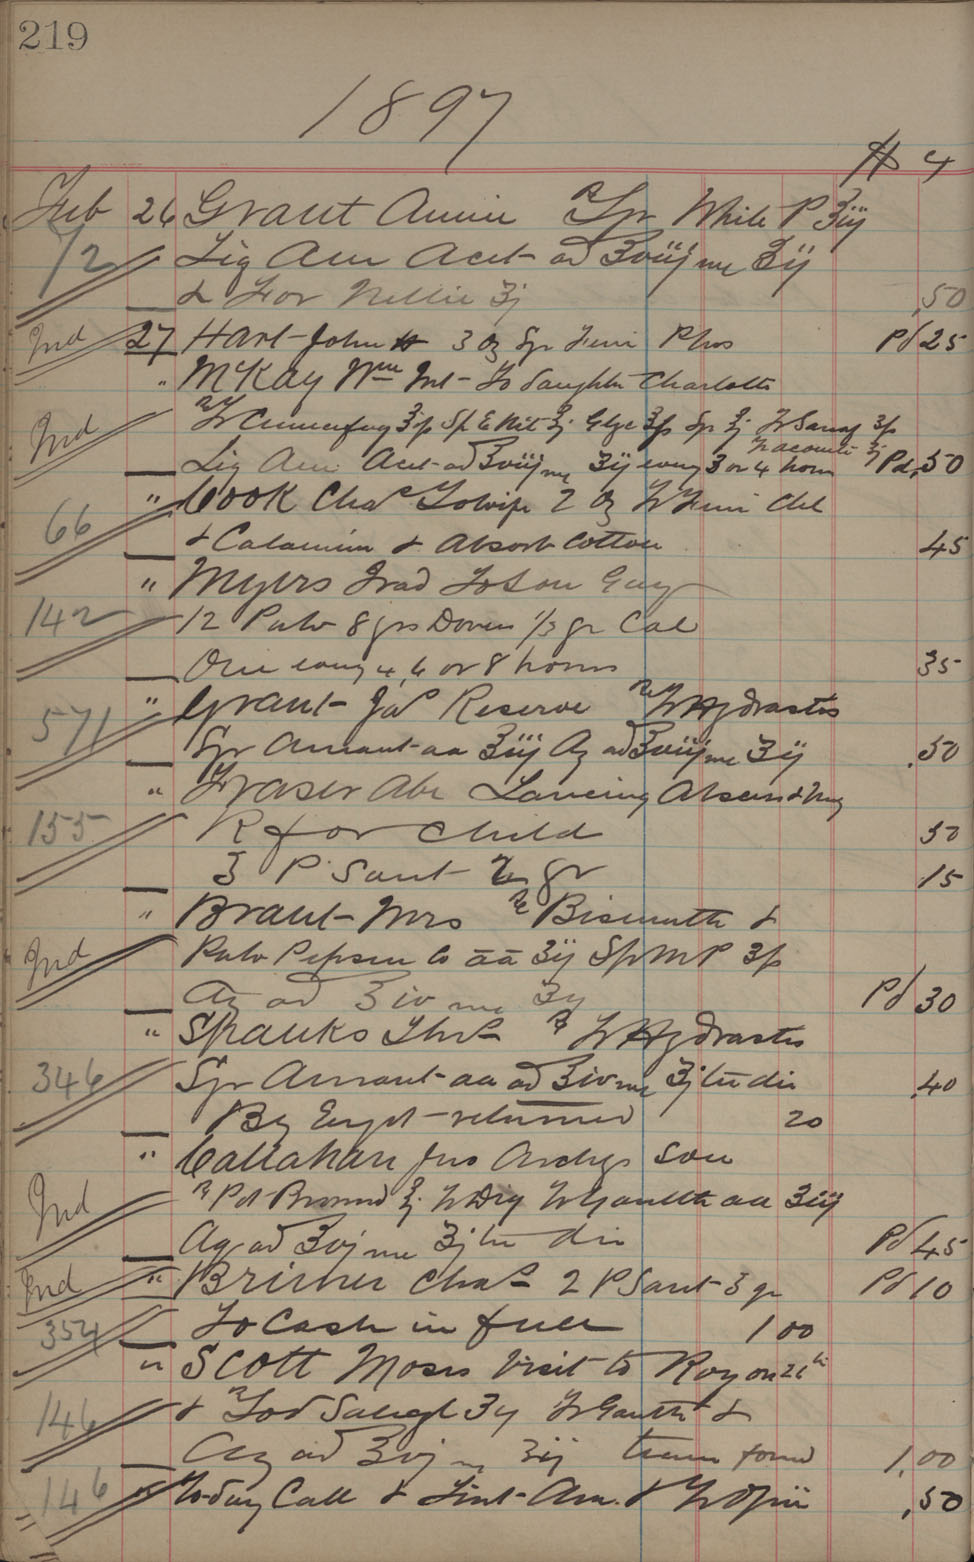 219
1897
$ 4
Feb 26 Grant Annie Rx Syr White P ʒiij
72 Liq Am Acet ad ℥viij me ʒij
& For Nellie ℥j .50
Ind 27 Hart John 3 oz Syr Ferri Phos Pd 25
" McKay Wm Ind - To daughter Charlotte
Ind Rx Tr Sp E Nit ℥j Glyc Syr ℥j Tr Sang
Tr aconite
Liq Am Acet ad ℥viij me ʒij every 3 or 4 hours Pd .50
66 " Cook Chas To wife 2 oz Tr Ferri Chl
& Calamine & Absorb Cotton 45
" Myers Frad To Son Guy
142 12 Pulv 8 grs Dovers 1/3 gr Cal
One every 4, 6 or 8 hours 35
571 " Grant Jas Reserve Rx Tr Hydrastis
Syr Aurant aa ʒiij Aq ad ℥viij me ʒij .50
" Fraser Abe Lancing Abscess &
155 R for Child 50
3 P Sant gr 15
" Brant Mrs Rx Bismuth &
Ind Pulv Pepsin Co aa ʒij Sp M P
Aq ad ℥iv me ʒj Pd 30
" Spanks Thos Rx Tr Hydrastis
346 Syr Aurant aa ad ℥iv me ʒj ter die .40
By Empt returned 20
" Callahan Jno Archys son
Ind Rx Pot Bromid ℥j Tr Dig Tr Gaulth aa ʒiij
Aq ad ℥vj me ʒj ter die Pd 45
Ind " Brimer Chas 2 P Sant 3 gr Pd 10
354 To Cash in full 1 00
" Scott Moses Visit to Roy on 26th
146 & Rx Sod Salicyl ʒij Tr Gaulth &
Aq ad ℥vj ʒij team found 1.00
146 " To-day Call & Lint Am. & Tr Opii .50